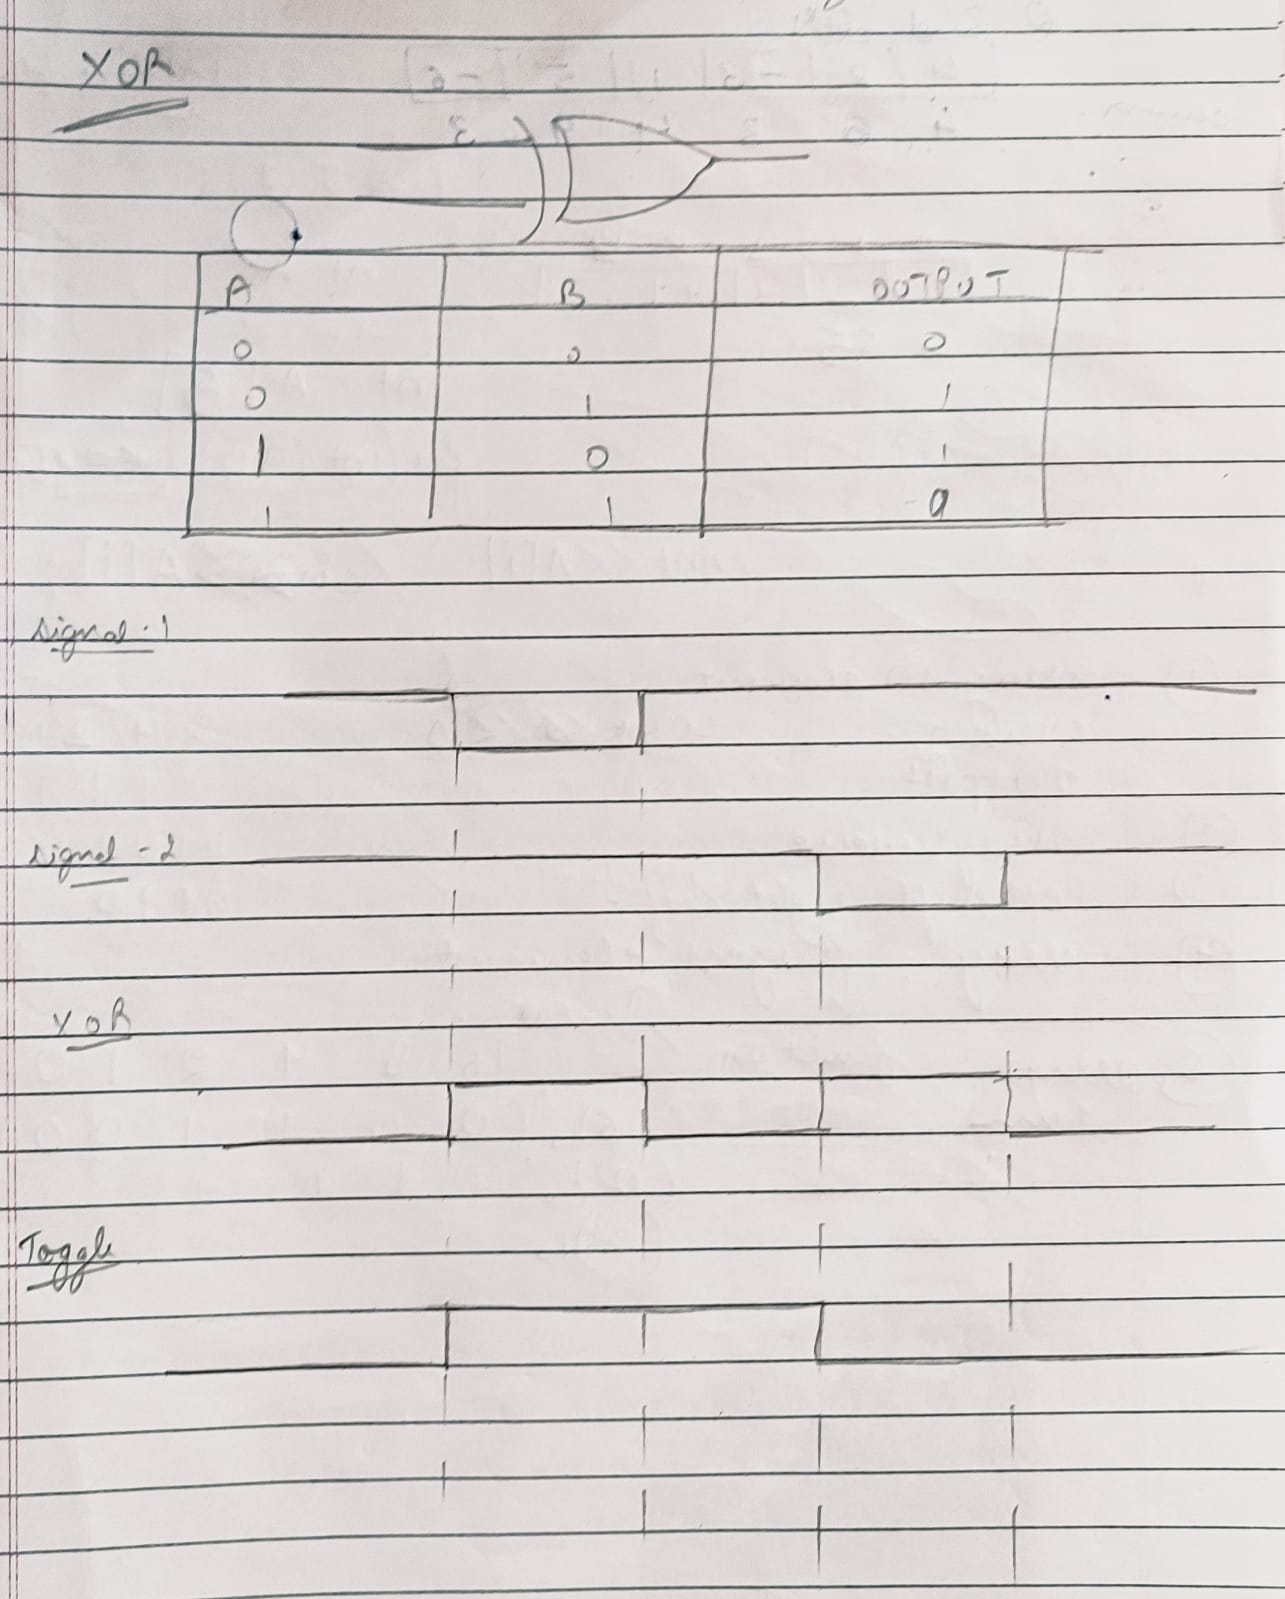 XOR
A B OUTPUT
0 0 0
0 1 1
1 0 1
1 1 0
Signal-1
Signal-2
XOR
Toggle